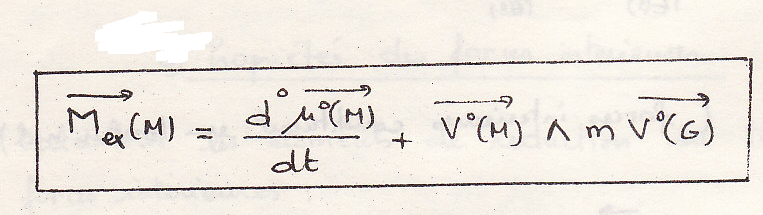 M⃗ex(M) = d° μ⃗°(M) / dt + V⃗°(M) ∧ m V⃗°(G)